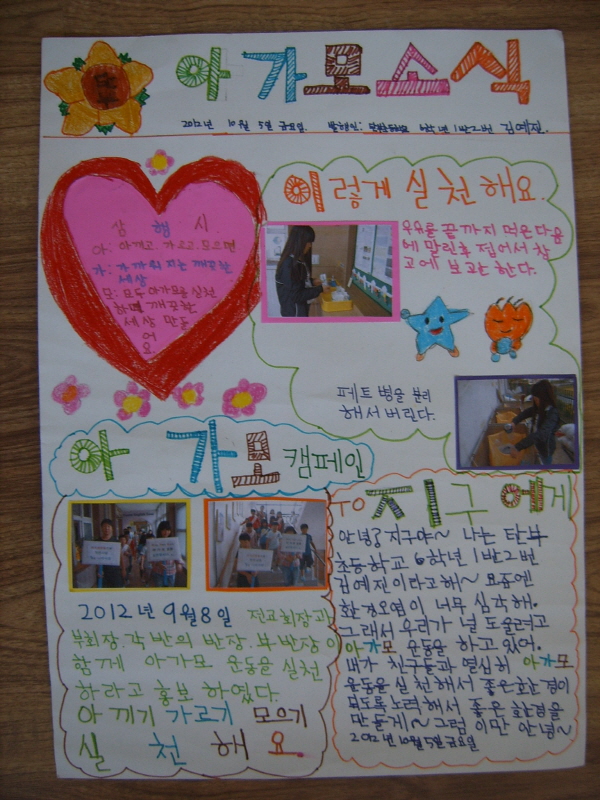 아가모소식
2012년 10월 5일 금요일. 발행인: 6학년 1반 2번 김예진.
삼 행 시
아: 아끼고 가르고 모으면
가: 가까워 지는 깨끗한
세상
모: 모두 아가모를 실천
하면 깨끗한
세상 만들
어
요
이렇게 실천해요.
우유를 끝까지 먹은다음
에 말린후 접어서 창
고에 보관 한다.
페트 병을 분리
해서 버린다.
아가모 캠페인
2012년 9월8일 전교회장과
부회장. 각 반의 반장. 부반장이
함께 아가모 운동을 실천
하라고 홍보 하였다.
아끼기 가르기 모으기
실천해요.
TO 지구에게
안녕? 지구야~ 나는 탄부
초등학교 6학년 1반2번
김예진이라고해~ 요즈엔
환경오염이 너무 심각해.
그래서 우리가 널 도울려고
아가모 운동을 하고있어.
내가 친구들과 열심히 아가모
운동을 실천해서 좋은환경이
되도록노력해서 좋은 환경을
만들게~ 그럼 이만 안녕~
2012년 10월5일 금요일